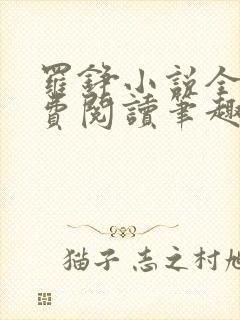 羅錚小説全
費閱讀筆趣
猫子志之村旭